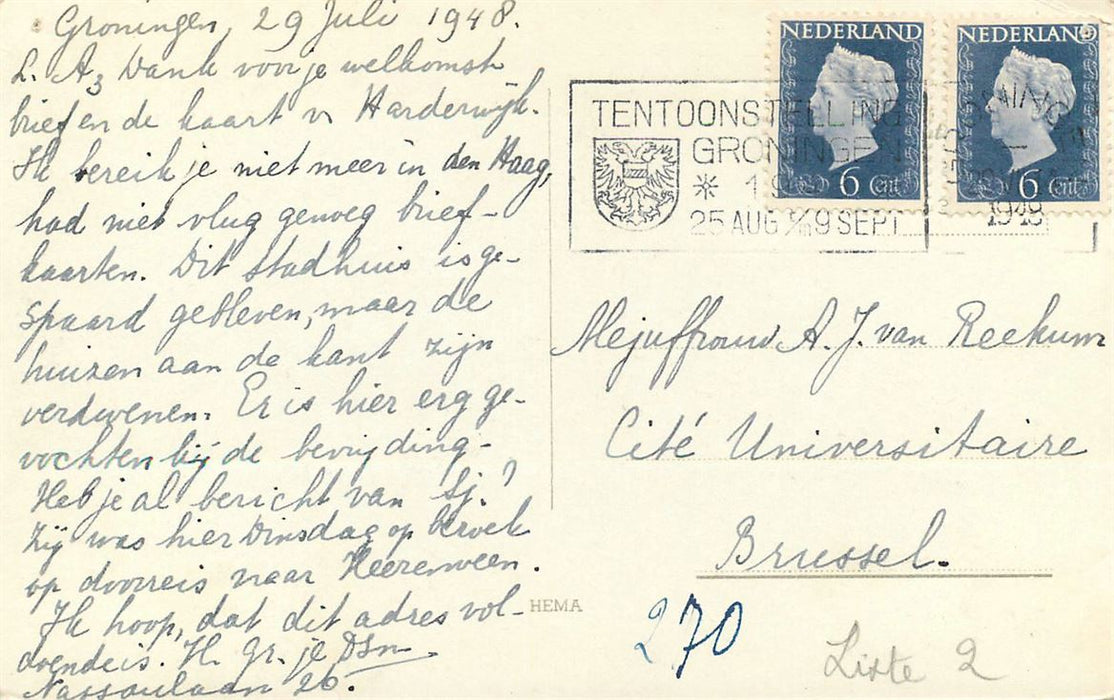 Groningen, 29 Juli 1948.
L. A, Dank voor je welkomst-
brief en de kaart v Harderwijk.
Ik bereik je niet meer in den Haag,
had niet vlug genoeg brief-
kaarten. Dit stadhuis is ge-
spaard gebleven, maar de
huizen aan de kant zijn
verdwenen. Er is hier erg ge-
vochten bij de bevrijding.
Heb je al bericht van Sj.?
Zij was hier Dinsdag op bezoek
op doorreis naar Heerenveen.
Ik hoop, dat dit adres vol-
doende is. H. Gr. je
Nassaulaan 26.
HEMA
NEDERLAND
6 Cent
NEDERLAND
6 Cent
TENTOONSTELLING
GRONINGEN
25 AUG T/M 9 SEPT
1948
Mejuffrouw A. J. van Reekum
Cité Universitaire
Brussel.
270
Liste 2